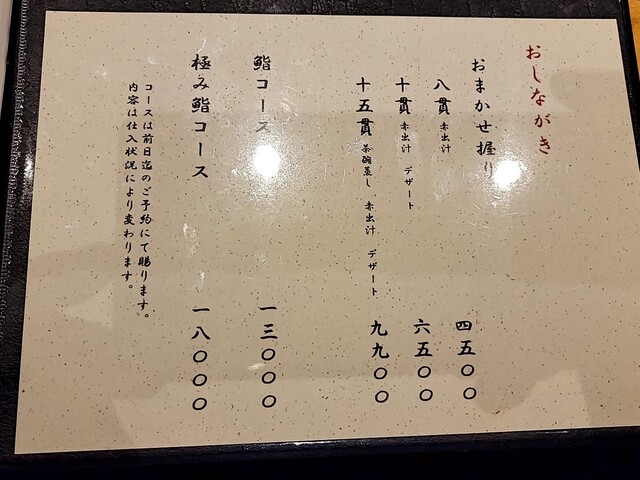 おしながき
おまかせ握り
八貫 赤出汁 四五〇〇
十貫 赤出汁 デザート 六五〇〇
十五貫 茶碗蒸し 赤出汁 デザート 九九〇〇
鮨コース 一三〇〇〇
極み鮨コース 一八〇〇〇
コースは前日迄のご予約にて賜ります。
内容は仕入状況により変わります。